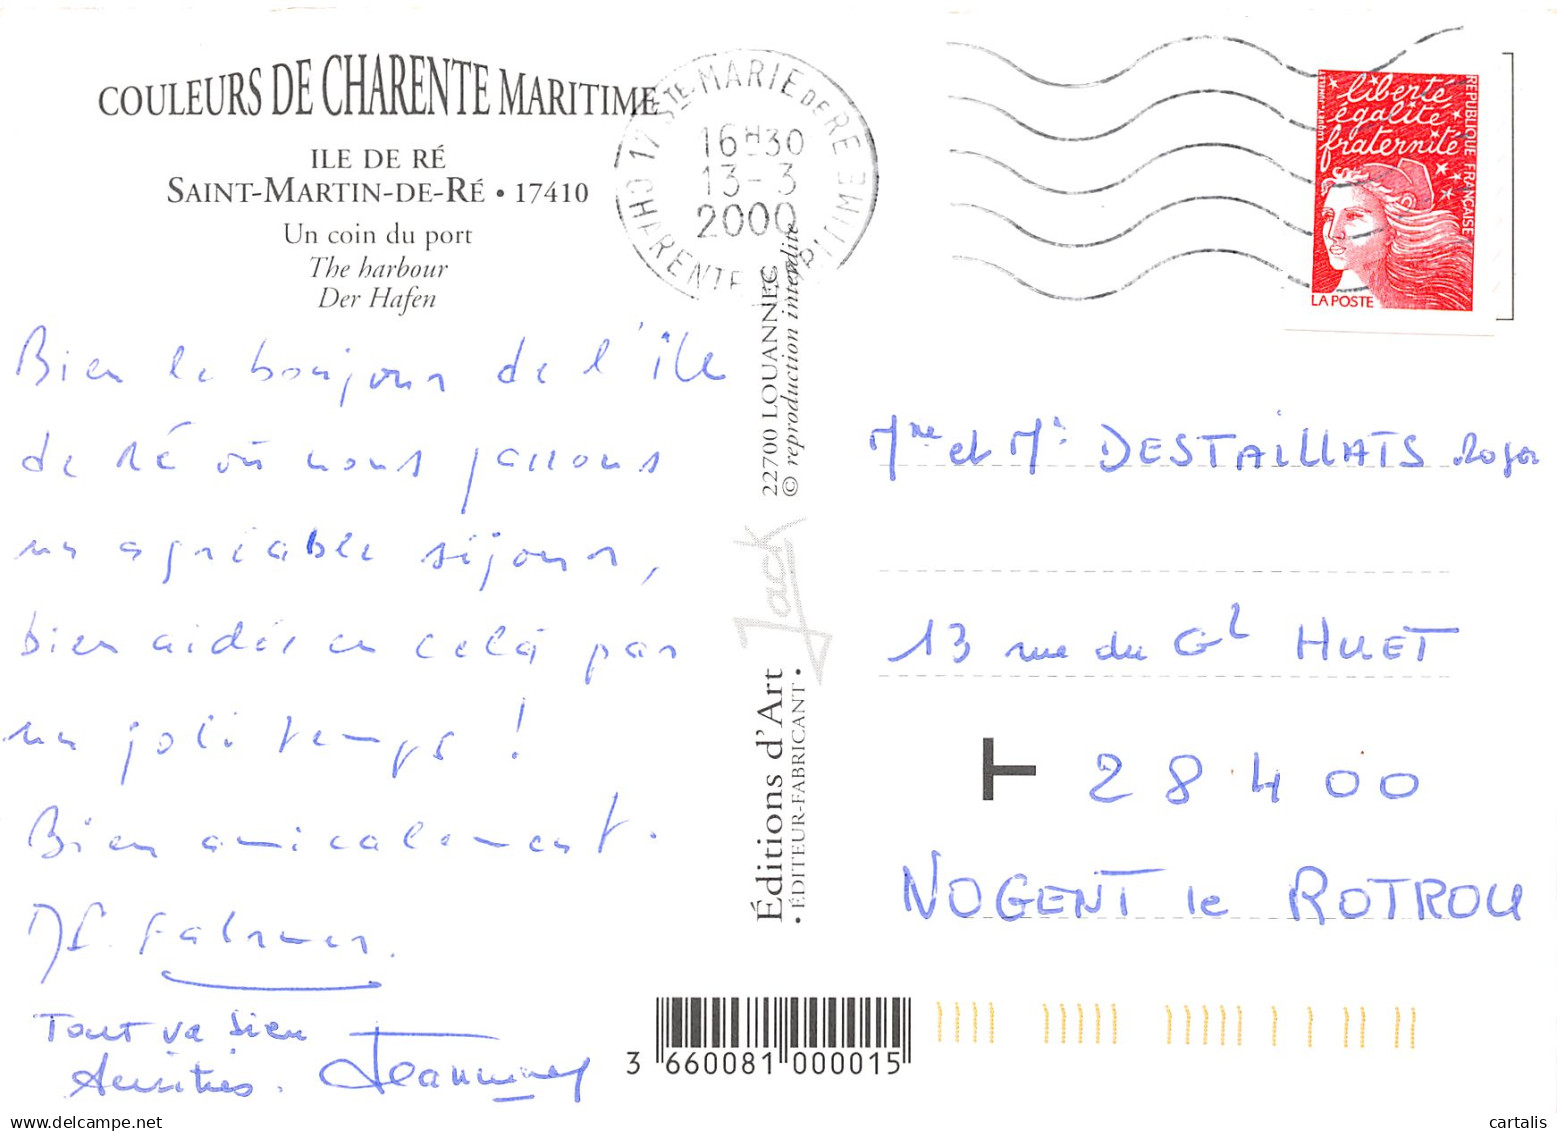 COULEURS DE CHARENTE MARITIME
ILE DE RÉ
SAINT-MARTIN-DE-RÉ • 17410
Un coin du port
The harbour
Der Hafen
17 STE-MARIE DE RE
16H30
13-3
2000
CHARENTE MARITIME
liberté
égalité
fraternité
REPUBLIQUE FRANÇAISE
LA POSTE
Bien le bonjour de l'île
de ré où nous passons
un agréable séjour,
bien aidés en celà par
un joli temps !
Bien amicalement.
Tout va bien
Amitiés.
22700 LOUANNEC
© reproduction interdite
Jack
Éditions d'Art
• ÉDITEUR-FABRICANT •
Mme et Mr DESTAILLATS Roger
13 rue du Gl HUET
T 28400
NOGENT le ROTROU
3 660081 000015
www.delcampe.net
cartalis